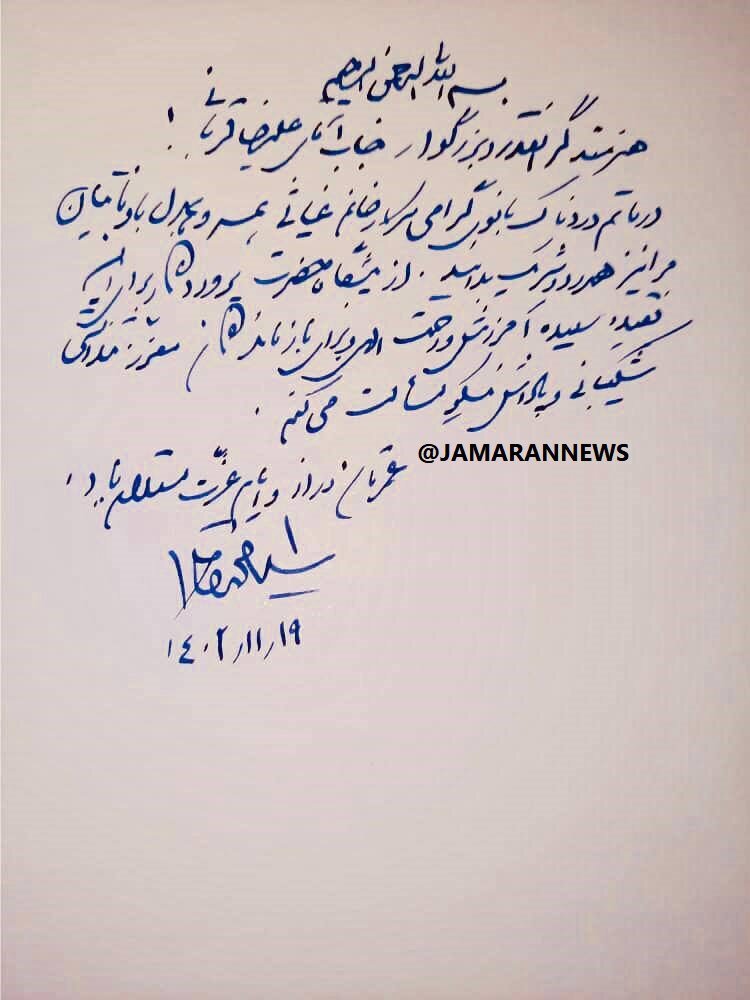 بسم الله الرحمن الرحیم
هنرمند گرانقدر و بزرگوار جناب آقای علیرضا قربانی!
در ماتم دردناک بانوی گرامی سرکار خانم غیاثی همسر و همدل باوفایتان
مرا نیز همدرد و شریک بدانید. از پیشگاه حضرت پروردگار برای آن
فقیده سعیده آمرزش و رحمت الهی و برای بازماندگان معزز
شکیبائی و پاداش نیکو مسألت می‌کنم.
@JAMARANNEWS
عمرتان دراز و ایام عزت مستدام باد!
سید محمد خاتمی
۱۴۰۲/۱۱/۱۹